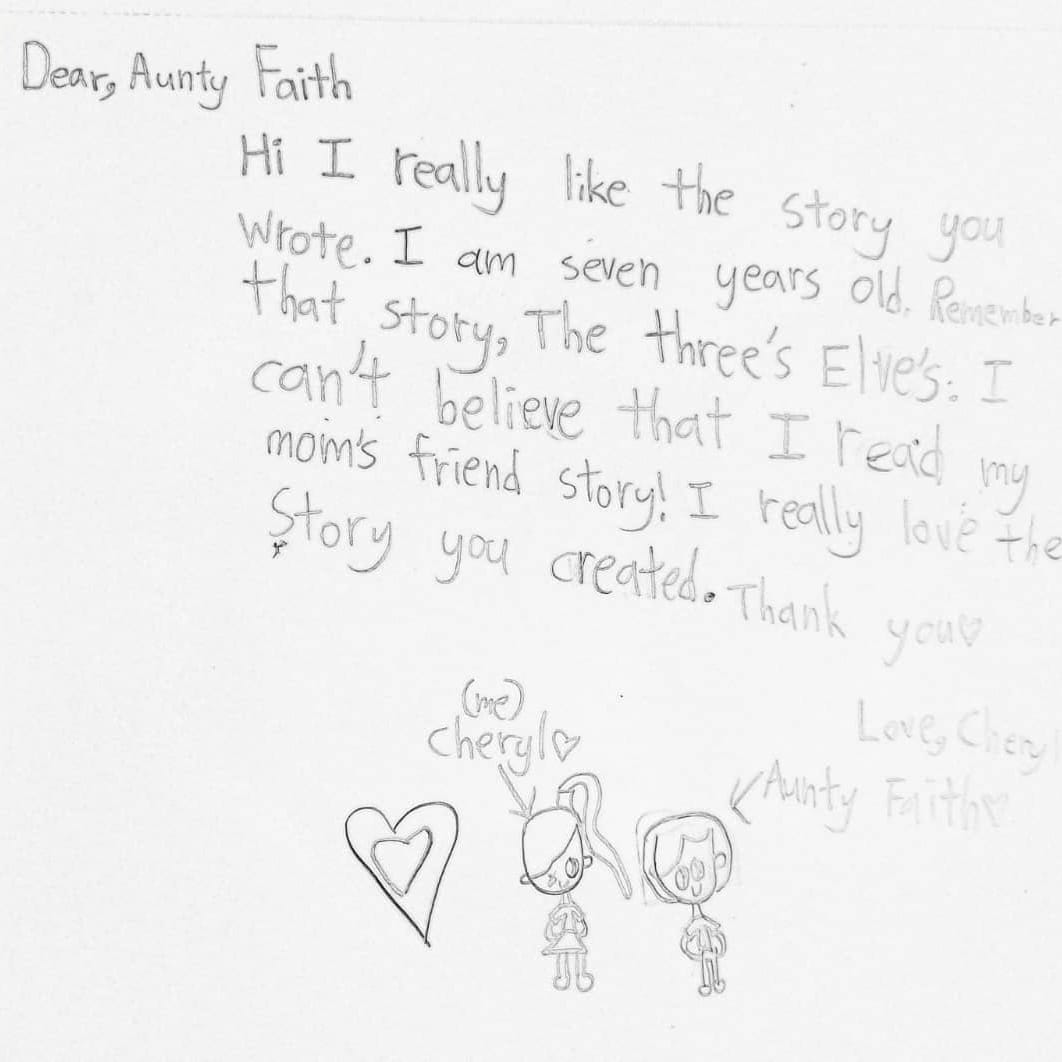 Dear, Aunty Faith
Hi I really like the story you
Wrote. I am seven years old. Remember
that story, The three's Elve's. I
can't believe that I read my
mom's friend story! I really love the
Story you created. Thank you♡
Love, Cheryl
(me)
Cheryl♡
Aunty Faith♡